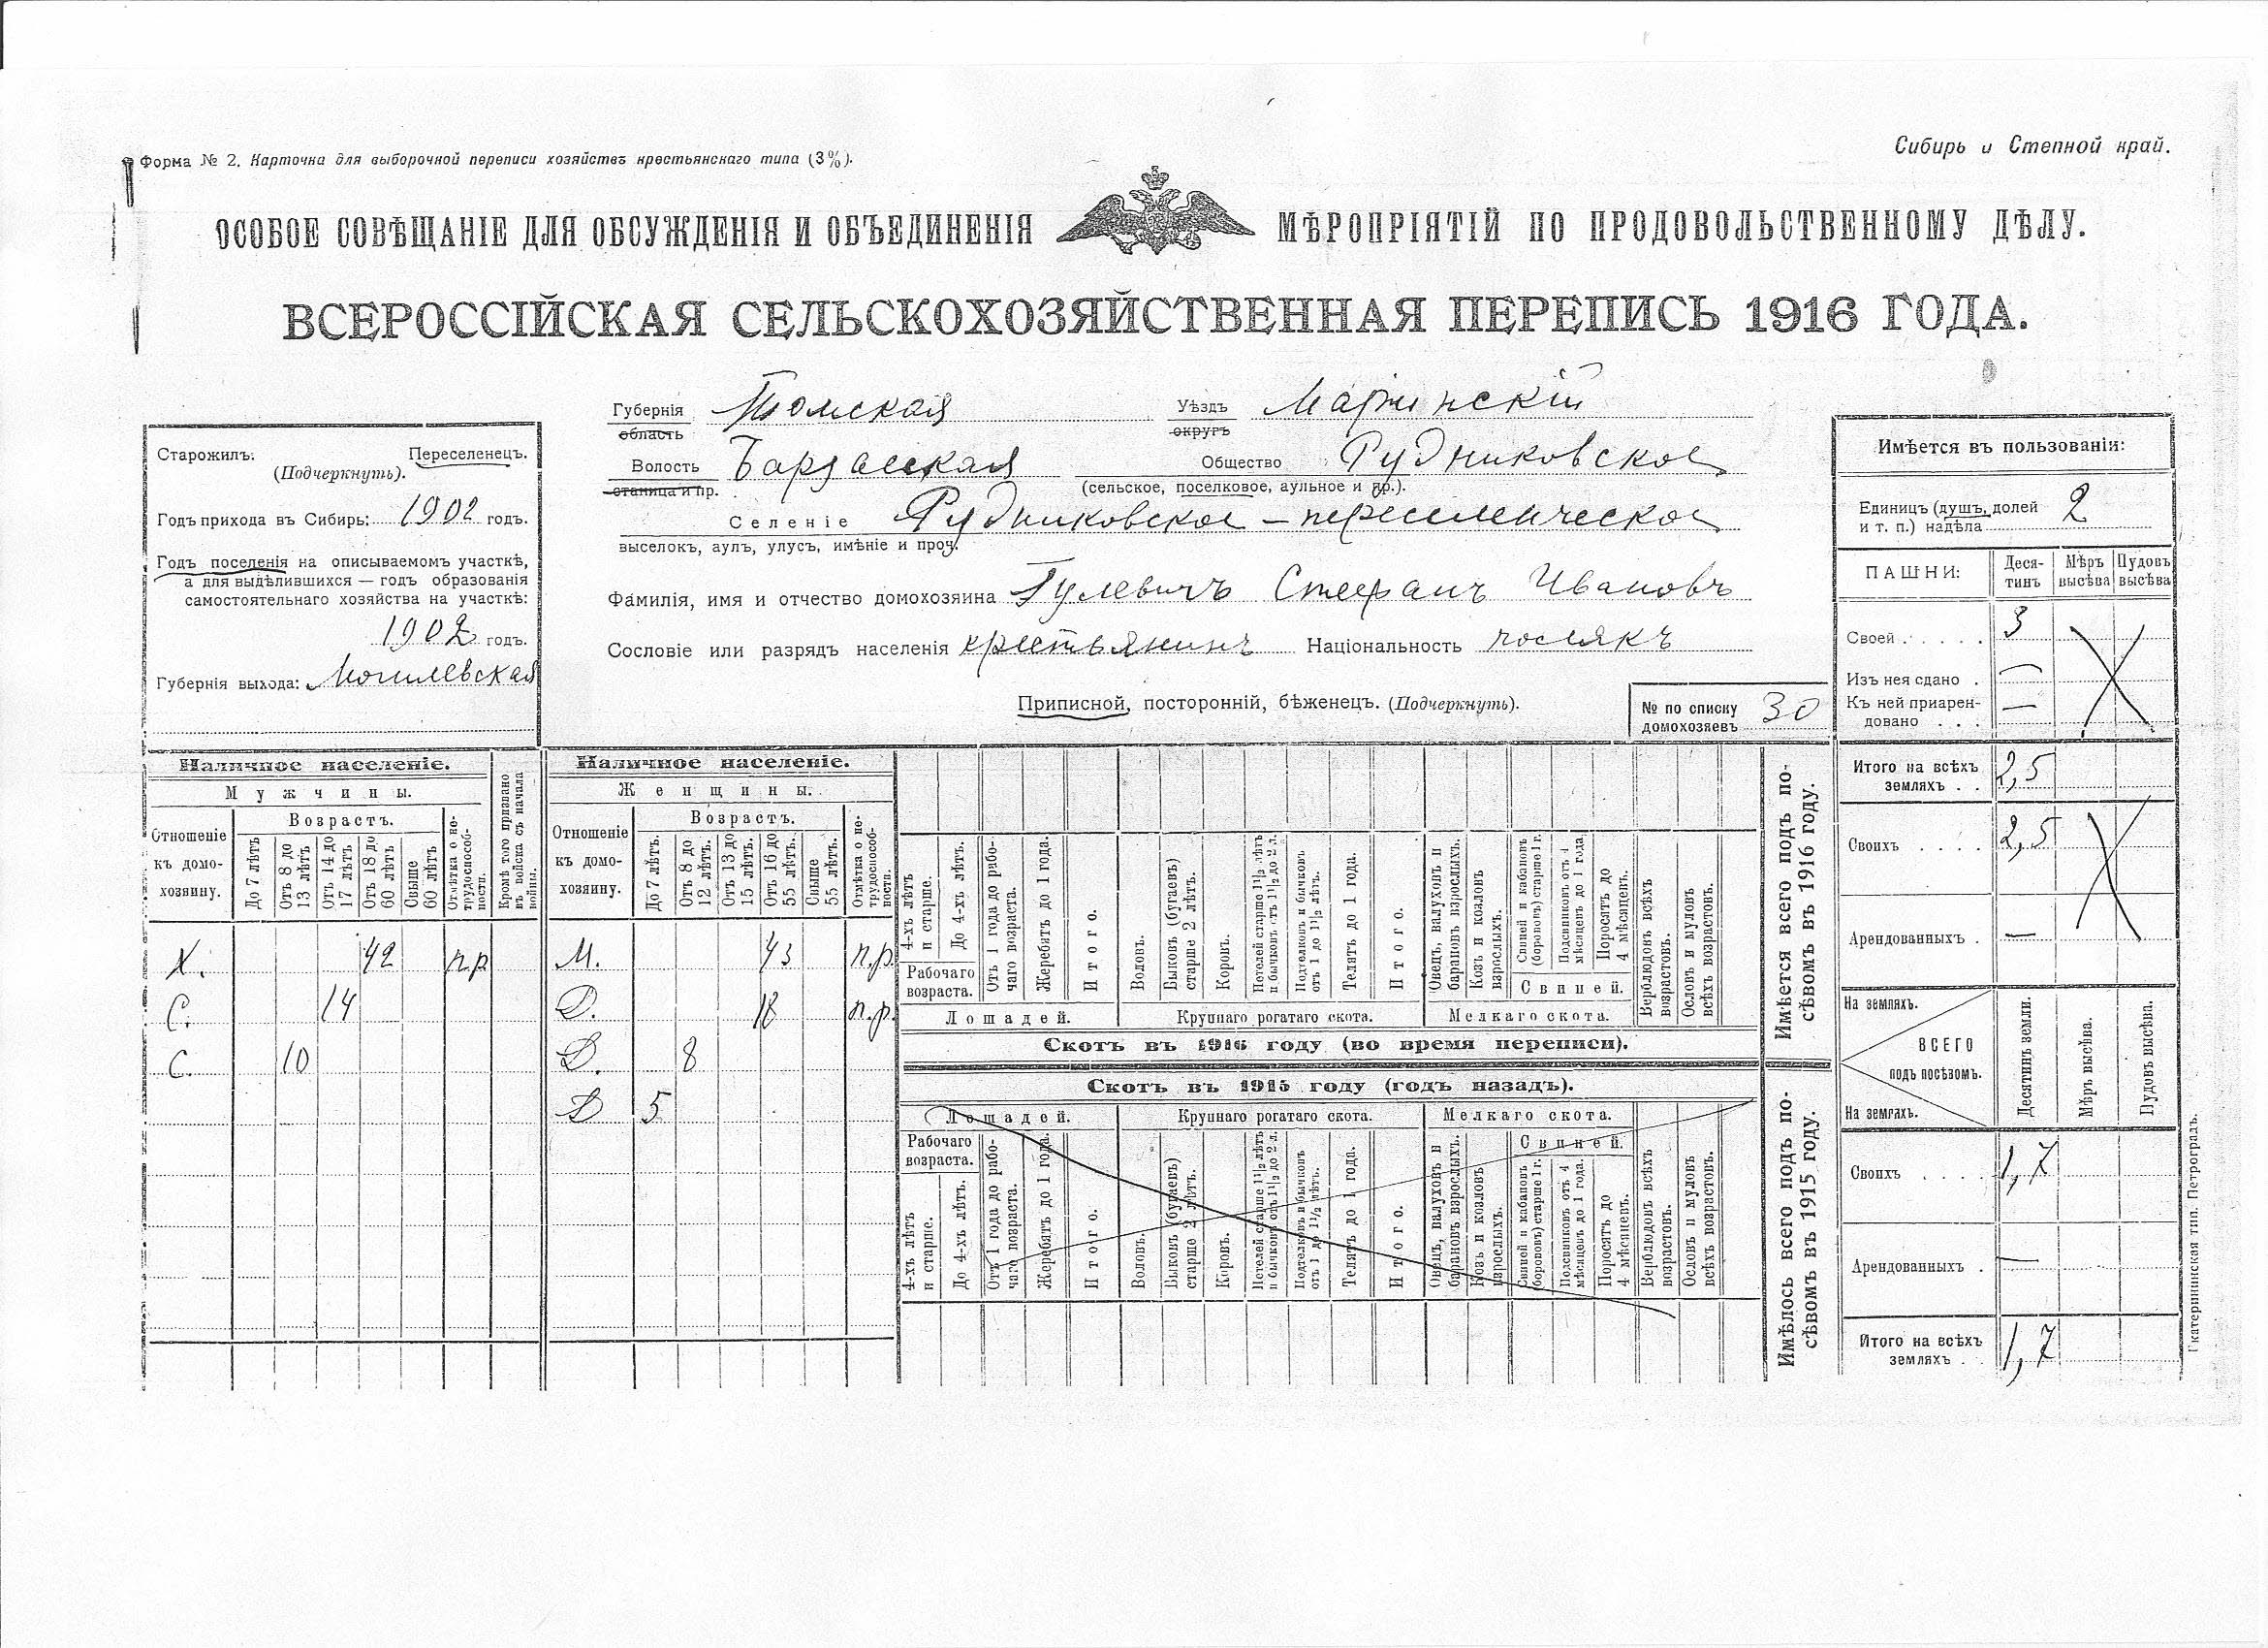 Форма № 2. Карточка для выборочной переписи хозяйствъ крестьянскаго типа (3%).
Сибирь и Степной край.
ОСОБОЕ СОВѢЩАНІЕ ДЛЯ ОБСУЖДЕНІЯ И ОБЪЕДИНЕНІЯ МѢРОПРІЯТІЙ ПО ПРОДОВОЛЬСТВЕННОМУ ДѢЛУ.
ВСЕРОССІЙСКАЯ СЕЛЬСКОХОЗЯЙСТВЕННАЯ ПЕРЕПИСЬ 1916 ГОДА.
Старожилъ. Переселенецъ.
(Подчеркнуть).
Годъ прихода въ Сибирь: 1902 годъ.
Годъ поселенія на описываемомъ участкѣ,
а для выдѣлившихся — годъ образованія
самостоятельнаго хозяйства на участкѣ:
1902 годъ.
Губернія выхода: Могилевская
Губернія Томская Уѣздъ Маріинскій
область округъ
Волость Барзасская Общество Рудниковское
станица и пр. (сельское, поселковое, аульное и пр.).
Селеніе Рудниковское – переселенческое
выселокъ, аулъ, улусъ, имѣніе и проч.
Фамилія, имя и отчество домохозяина Гулевичъ Стефанъ Ивановъ
Сословіе или разрядъ населенія крестьянинъ Національность полякъ
Приписной, посторонній, бѣженецъ. (Подчеркнуть).
№ по списку домохозяевъ 30
Имѣется въ пользованіи:
Единицъ (душъ, долей
и т. п.) надѣла 2
ПАШНИ: Деся-тинъ Мѣръ высѣва Пудовъ высѣва
Своей 3
Изъ нея сдано —
Къ ней приарен-
довано —
Итого на всѣхъ
земляхъ 2,5
Своихъ 2,5
Арендованныхъ —
На земляхъ.
ВСЕГО
подъ посѣвомъ.
На земляхъ.
Десятинъ земли.
Мѣръ высѣва.
Пудовъ высѣва.
Своихъ 1,7
Арендованныхъ —
Итого на всѣхъ
земляхъ 1,7
Имѣется всего подъ по-
сѣвомъ въ 1916 году.
Имѣлось всего подъ по-
сѣвомъ въ 1915 году.
Наличное населеніе.
Мужчины.
Отношеніе
къ домо-
хозяину.
Возрастъ.
До 7 лѣтъ
Отъ 8 до 13 лѣтъ
Отъ 14 до 17 лѣтъ
Отъ 18 до 60 лѣтъ
Свыше 60 лѣтъ
Отмѣтка о не-трудоспособ-ности.
Кромѣ того призвано въ войска съ начала войны.
Х. 42 п.р
С. 14
С. 10
Наличное населеніе.
Женщины.
Отношеніе
къ домо-
хозяину.
Возрастъ.
До 7 лѣтъ.
Отъ 8 до 12 лѣтъ.
Отъ 13 до 15 лѣтъ.
Отъ 16 до 55 лѣтъ.
Свыше 55 лѣтъ.
Отмѣтка о не-трудоспособ-ности.
М. 43 п.р.
Д. 18 п.р.
Д. 8
Д 5
4-хъ лѣтъ и старше.
До 4-хъ лѣтъ.
Рабочаго
возраста.
Отъ 1 года до рабо-чаго возраста.
Жеребятъ до 1 года.
Итого.
Лошадей.
Воловъ.
Быковъ (бугаевъ) старше 2 лѣтъ.
Коровъ.
Нетелей старше 1 1/2 лѣтъ и бычковъ отъ 1 1/2 до 2 л.
Подтелковъ и бычковъ отъ 1 до 1 1/2 лѣтъ.
Телятъ до 1 года.
Итого.
Крупнаго рогатаго скота.
Овецъ, валуховъ и барановъ взрослыхъ.
Козъ и козловъ взрослыхъ.
Свиней и кабановъ (борововъ) старше 1 г.
Подсвинковъ отъ 4 мѣсяцевъ до 1 года.
Поросятъ до 4 мѣсяцевъ.
Свиней.
Мелкаго скота.
Верблюдовъ всѣхъ возрастовъ.
Ословъ и муловъ всѣхъ возрастовъ.
Скотъ въ 1916 году (во время переписи).
Скотъ въ 1915 году (годъ назадъ).
Лошадей.
Крупнаго рогатаго скота.
Мелкаго скота.
Рабочаго
возраста.
Свиней.
4-хъ лѣтъ и старше.
До 4-хъ лѣтъ.
Отъ 1 года до рабо-чаго возраста.
Жеребятъ до 1 года.
Итого.
Воловъ.
Быковъ (бугаевъ) старше 2 лѣтъ.
Коровъ.
Нетелей старше 1 1/2 лѣтъ и бычковъ отъ 1 1/2 до 2 л.
Подтелковъ и бычковъ отъ 1 до 1 1/2 лѣтъ.
Телятъ до 1 года.
Итого.
Овецъ, валуховъ и барановъ взрослыхъ.
Козъ и козловъ взрослыхъ.
Свиней и кабановъ (борововъ) старше 1 г.
Подсвинковъ отъ 4 мѣсяцевъ до 1 года.
Поросятъ до 4 мѣсяцевъ.
Верблюдовъ всѣхъ возрастовъ.
Ословъ и муловъ всѣхъ возрастовъ.
Екатерининская тип. Петроградъ.